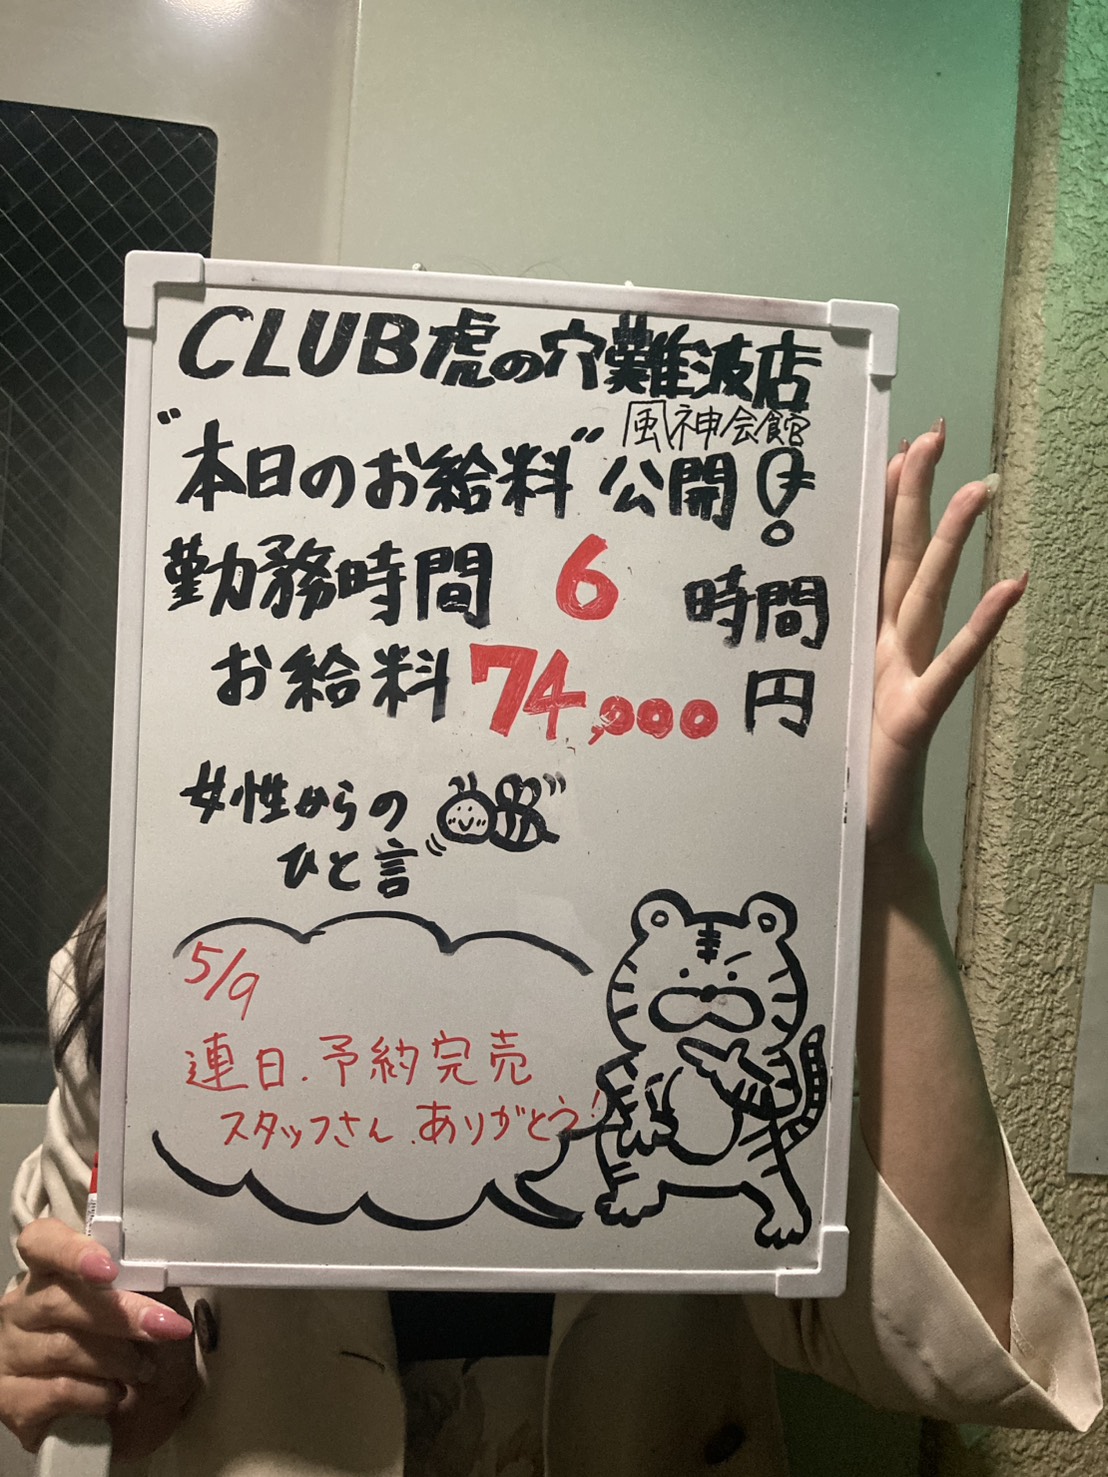 CLUB虎の穴難波店
風神会館
"本日のお給料"公開!
勤務時間 6 時間
お給料 74,000 円
女性からの
ひと言
5/9
連日、予約完売
スタッフさん、ありがとう!